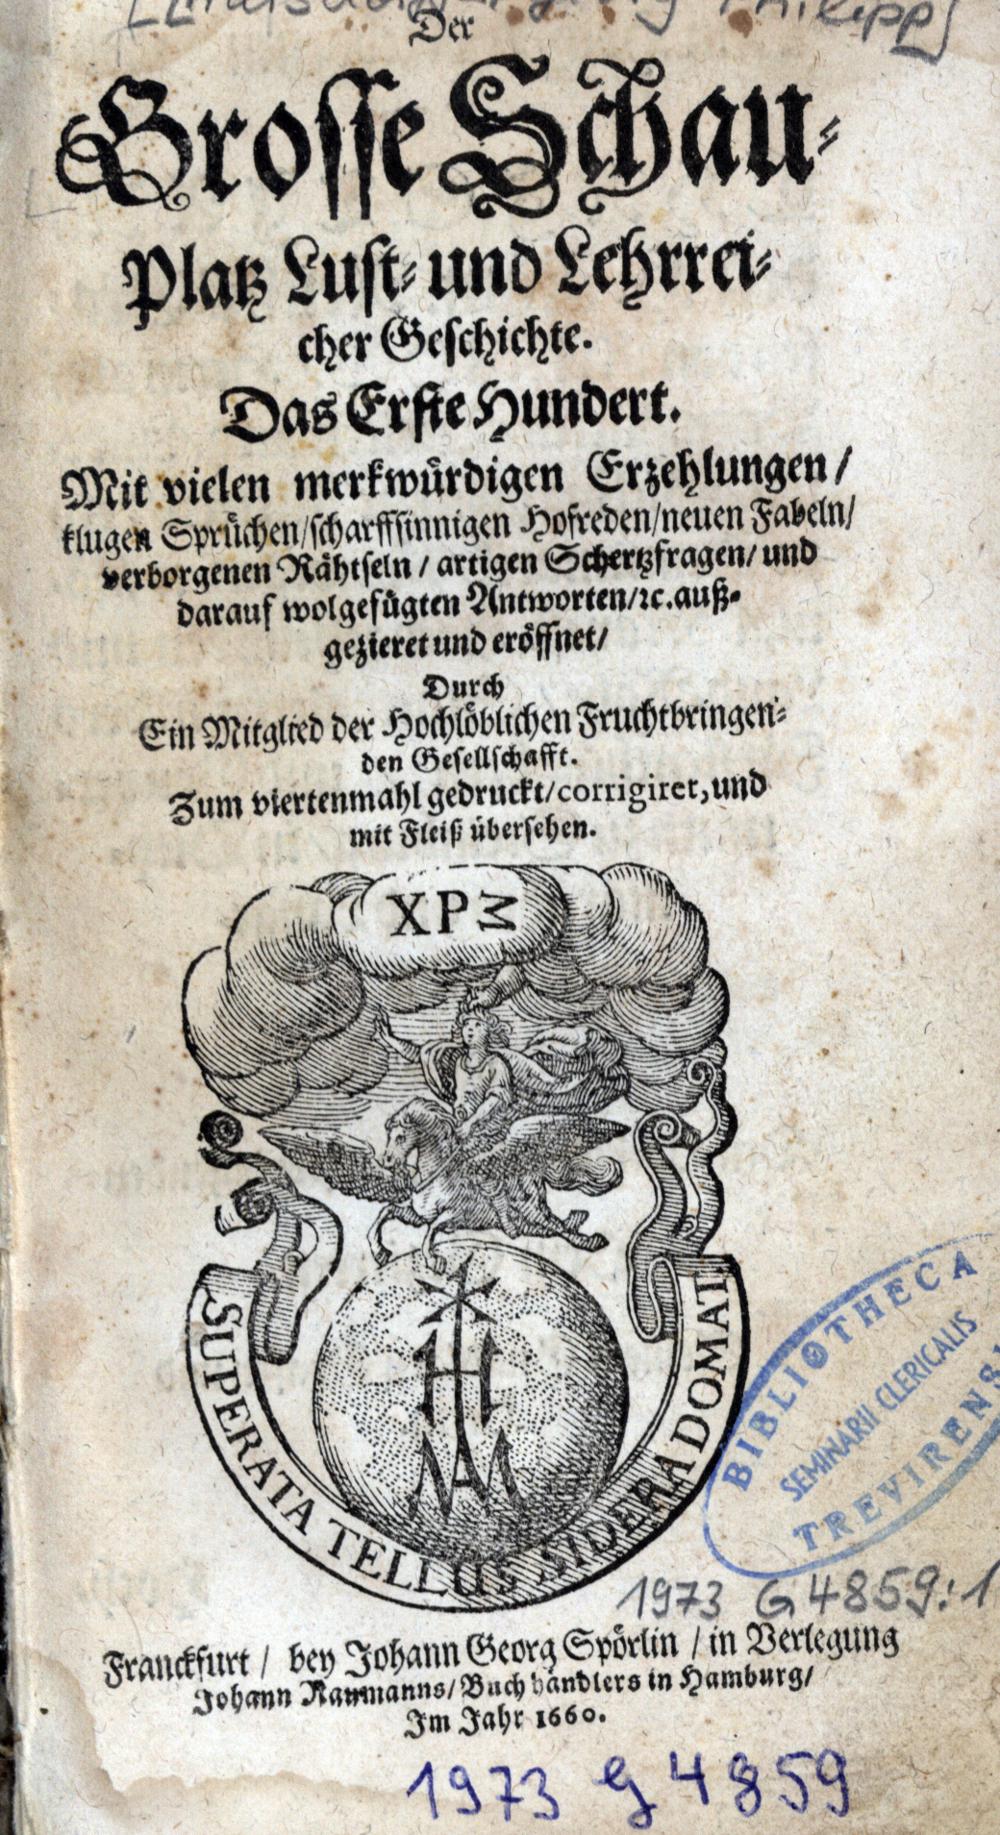 Philipp]
Der
Grosse Schau-
Platz Lust- und Lehrrei-
cher Geschichte.
Das Erste Hundert.
Mit vielen merkwürdigen Erzehlungen /
klugen Sprüchen/scharffsinnigen Hofreden/neuen Fabeln/
verborgenen Rähtseln / artigen Schertzfragen/ und
darauf wolgefügten Antworten/ꝛc. auß-
gezieret und eröffnet/
Durch
Ein Mitglied der Hochlöblichen Fruchtbringen-
den Gesellschafft.
Zum viertenmahl gedruckt/corrigiret, und
mit Fleiß übersehen.
XPM
SUPERATA TELLUS SIDERA DOMAT
BIBLIOTHECA
SEMINARII CLERICALIS
TREVIRENS
1973 G 4859:1
Franckfurt / bey Johann Georg Spörlin / in Verlegung
Johann Naumanns/ Buchhändlers in Hamburg/
Im Jahr 1660.
1973 G 4859